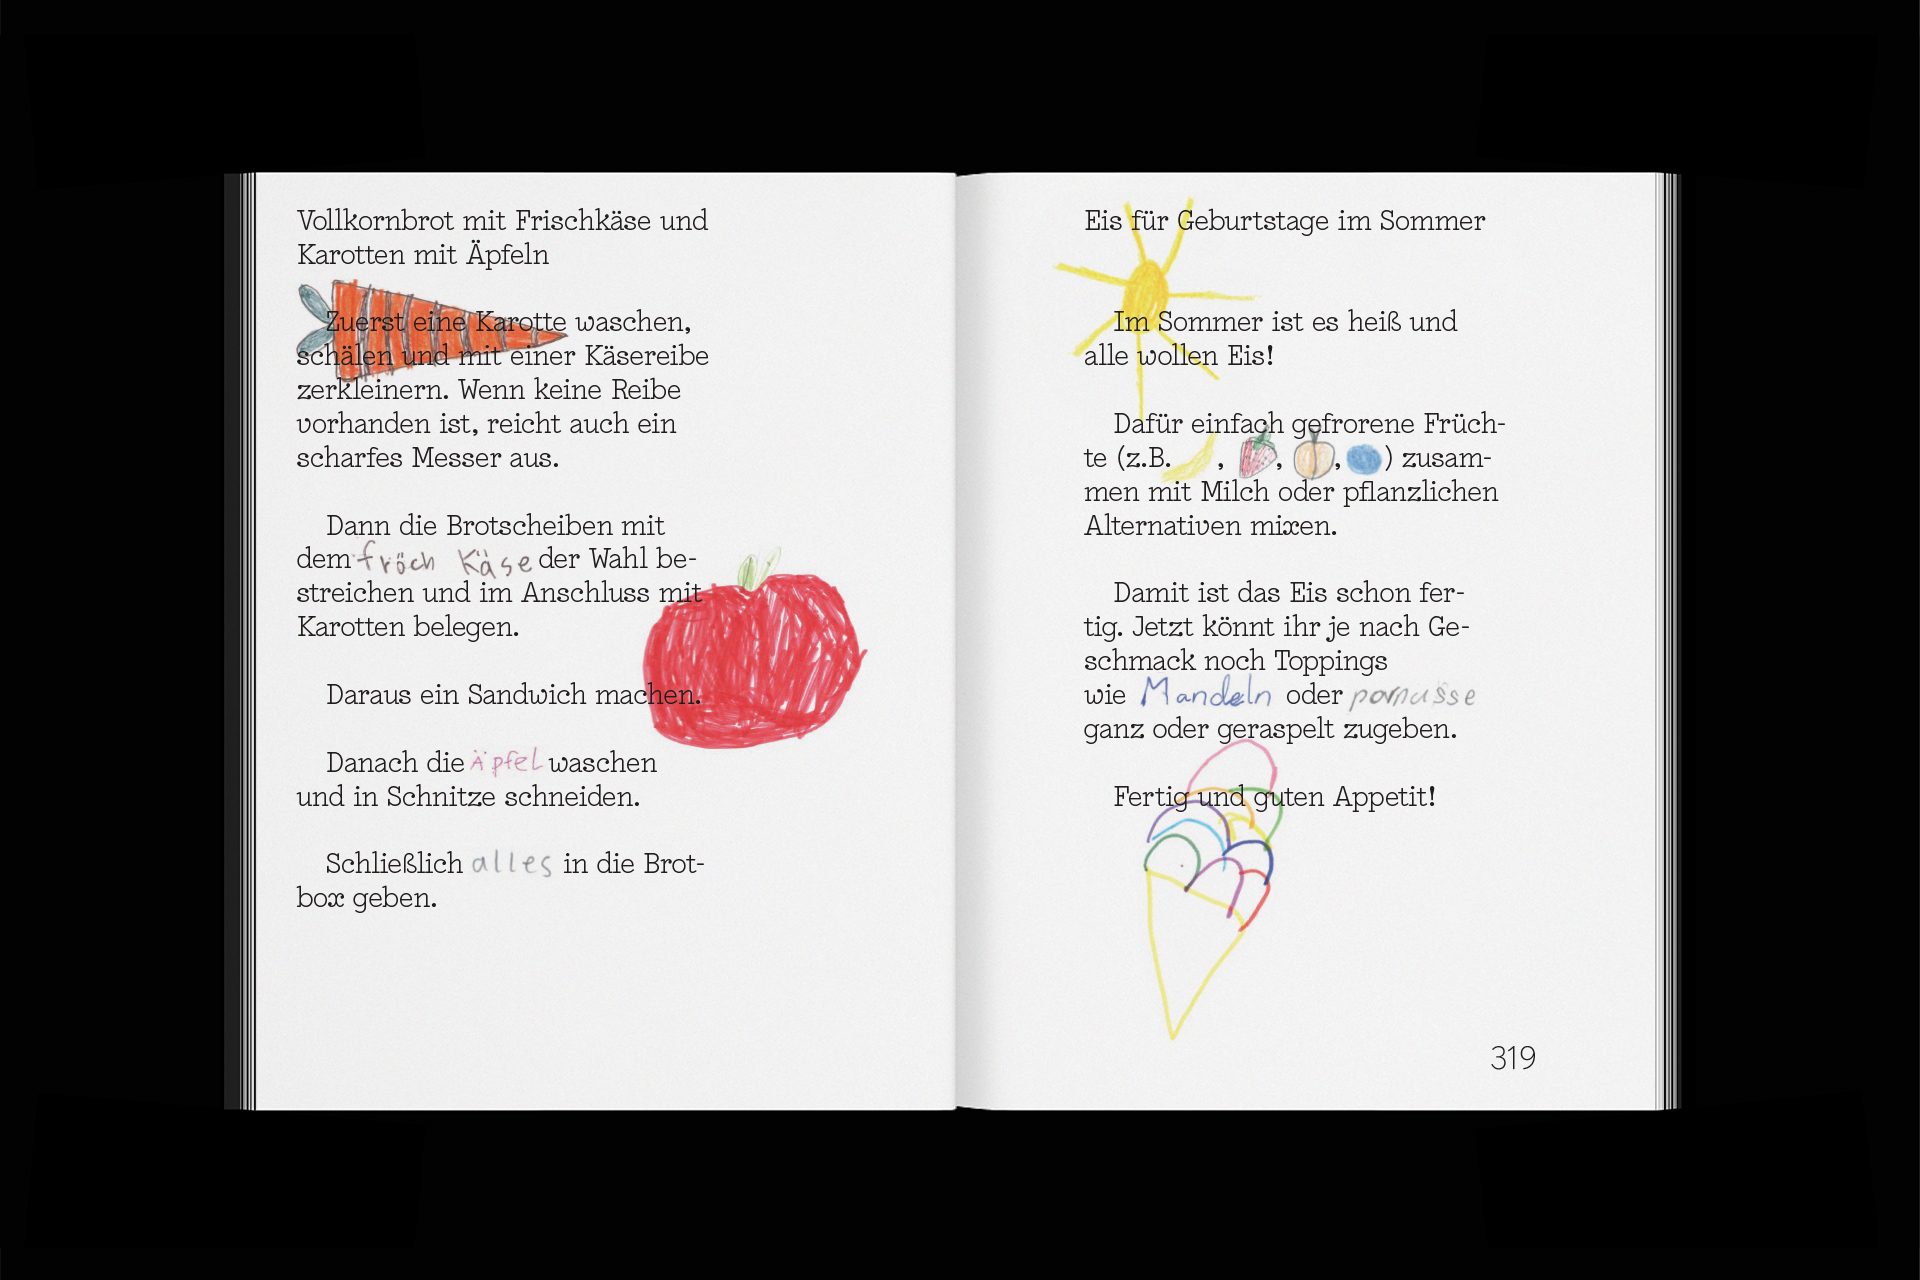 Vollkornbrot mit Frischkäse und
Karotten mit Äpfeln
Zuerst eine Karotte waschen,
schälen und mit einer Käsereibe
zerkleinern. Wenn keine Reibe
vorhanden ist, reicht auch ein
scharfes Messer aus.
Dann die Brotscheiben mit
dem fröch Käse der Wahl be-
streichen und im Anschluss mit
Karotten belegen.
Daraus ein Sandwich machen.
Danach die Äpfel waschen
und in Schnitze schneiden.
Schließlich alles in die Brot-
box geben.
Eis für Geburtstage im Sommer
Im Sommer ist es heiß und
alle wollen Eis!
Dafür einfach gefrorene Früch-
te (z.B. , , , ) zusam-
men mit Milch oder pflanzlichen
Alternativen mixen.
Damit ist das Eis schon fer-
tig. Jetzt könnt ihr je nach Ge-
schmack noch Toppings
wie Mandeln oder
ganz oder geraspelt zugeben.
Fertig und guten Appetit!
319